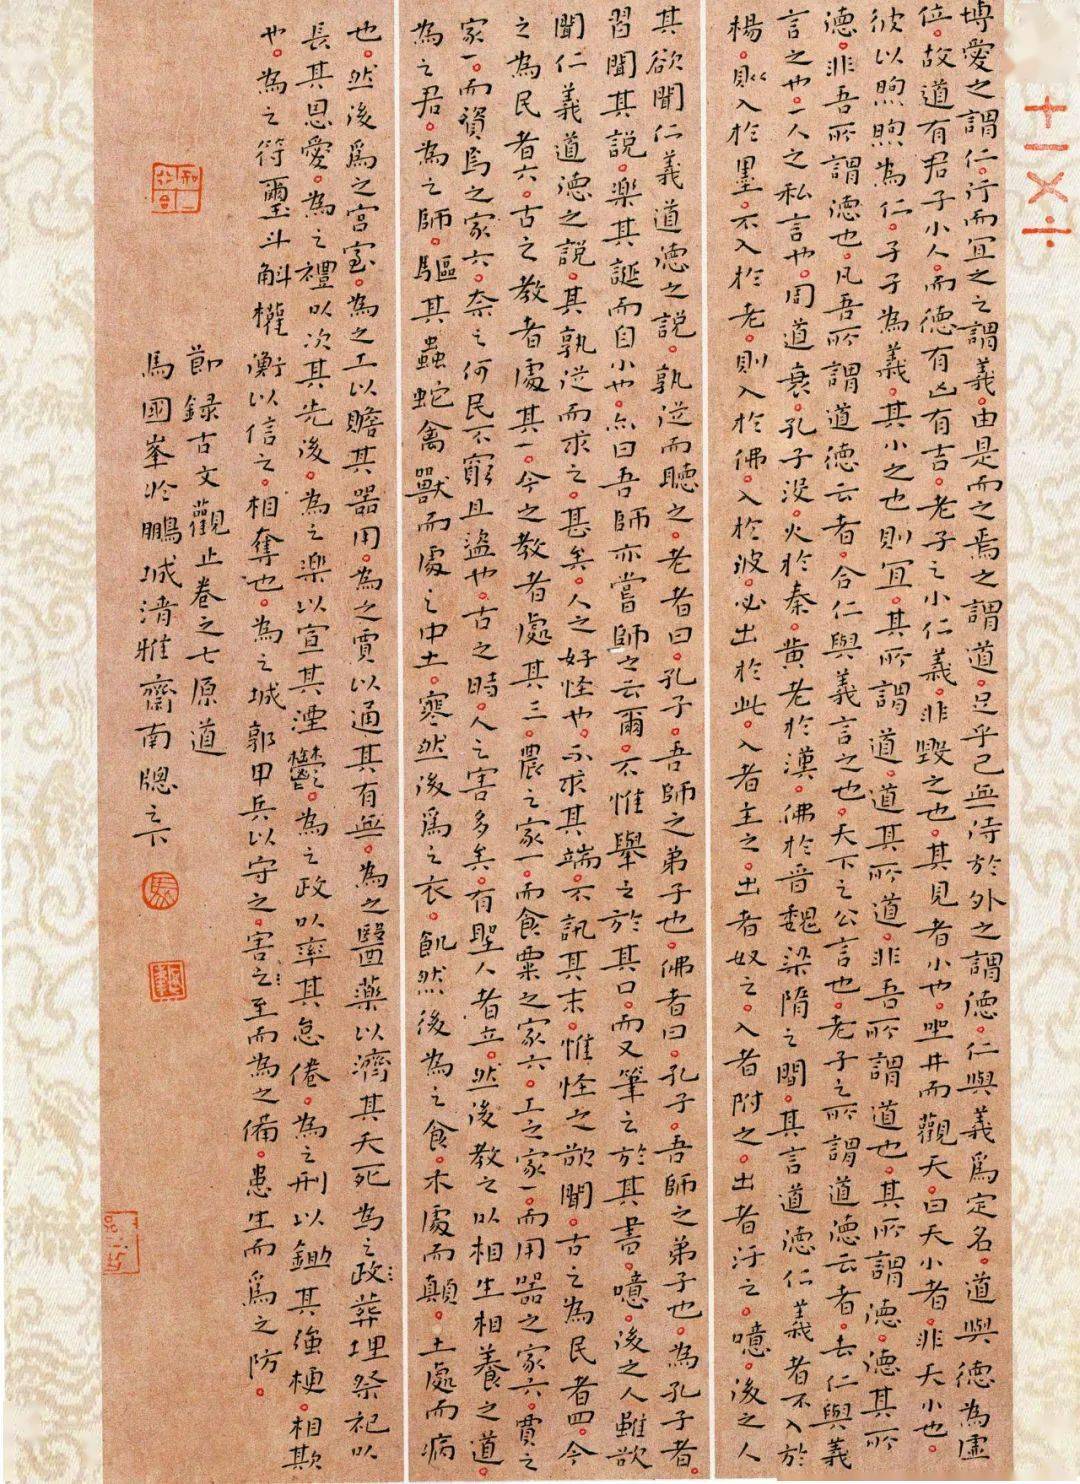 博愛之謂仁。行而宜之之謂義。由是而之焉之謂道。足乎己無待於外之謂德。仁與義爲定名。道與德為虛
位。故道有君子小人。而德有凶有吉。老子之小仁義。非毀之也。其見者小也。坐井而觀天。曰天小者。非天小也。
彼以煦煦為仁。孑孑為義。其小之也則宜。其所謂道。道其所道。非吾所謂道也。其所謂德。德其所
德。非吾所謂德也。凡吾所謂道德云者。合仁與義言之也。天下之公言也。老子之所謂道德云者。去仁與義
言之也。一人之私言也。周道衰。孔子没。火於秦。黄老於漢。佛於晋魏梁隋之間。其言道德仁義者不入於
楊。則入於墨。不入於老。則入於佛。入於彼。必出於此。入者主之。出者奴之。入者附之。出者汙之。噫。後之人
其欲聞仁義道德之説。孰從而聽之。老者曰。孔子。吾師之弟子也。佛者曰。孔子。吾師之弟子也。為孔子者。
習聞其説。樂其誕而自小也。亦曰吾師亦嘗師之云爾。不惟舉之於其口。而又筆之於其書。噫。後之人雖欲
聞仁義道德之説。其孰從而求之。甚矣。人之好怪也。不求其端。不訊其末。惟怪之欲聞。古之為民者四。今
之為民者六。古之教者處其一。今之教者處其三。農之家一。而食粟之家六。工之家一。而用器之家六。賈之
家一。而資焉之家六。奈之何民不窮且盜也。古之時。人之害多矣。有聖人者立。然後教之以相生相養之道。
為之君。為之師。驅其蟲蛇禽獸而處之中土。寒然後爲之衣。飢然後為之食。木處而顛。土處而病
也。然後爲之宮室。為之工以贍其器用。為之賈以通其有無。為之醫藥以濟其夭死。為之政葬埋祭祀以
長其恩愛。為之禮以次其先後。為之樂以宣其湮鬱。為之政以率其怠倦。為之刑以鋤其強梗。相欺
也。為之符璽斗斛權衡以信之。相奪也。為之城郭甲兵以守之。害之至而為之備。患生而爲之防。
節録古文觀止卷之七原道
馬國峯於鵬城清雅齋南牕之下